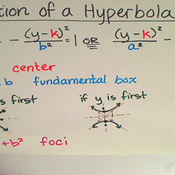 tion of a Hyperbola
- (y-k)²/b² = 1 OR (y-k)²/a² -
center
b fundamental box
is first if y is first
+b² foci